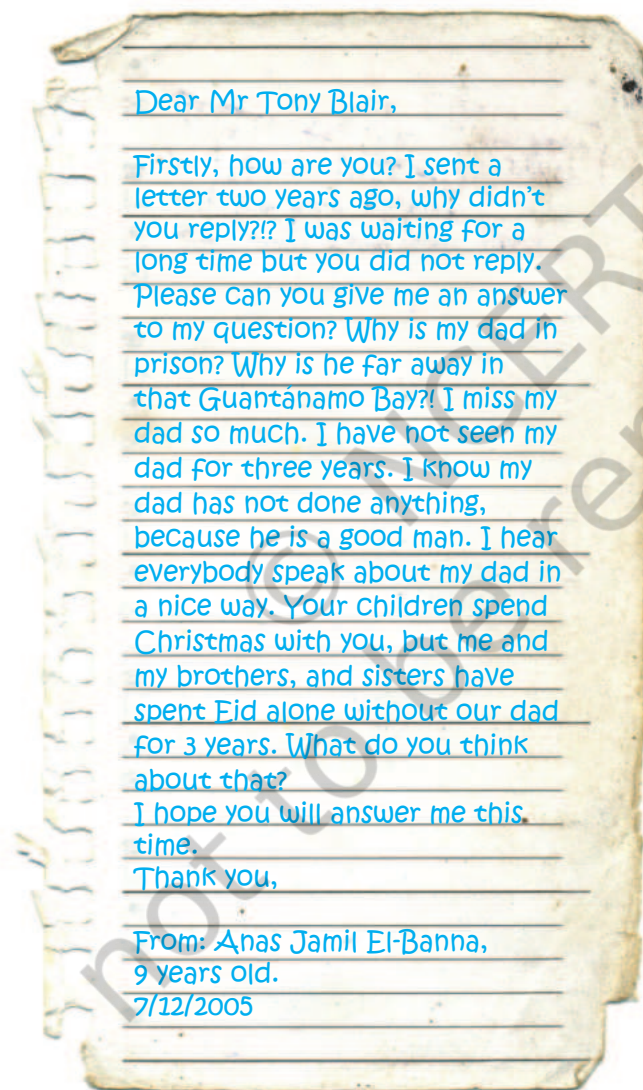 Dear Mr Tony Blair,
Firstly, how are you? I sent a
letter two years ago, why didn't
you reply?!? I was waiting for a
long time but you did not reply.
Please can you give me an answer
to my question? Why is my dad in
prison? Why is he far away in
that Guantánamo Bay?! I miss my
dad so much. I have not seen my
dad for three years. I know my
dad has not done anything,
because he is a good man. I hear
everybody speak about my dad in
a nice way. Your children spend
Christmas with you, but me and
my brothers, and sisters have
spent Eid alone without our dad
for 3 years. What do you think
about that?
I hope you will answer me this
time.
Thank you,
From: Anas Jamil El-Banna,
9 years old.
7/12/2005
© NCERT
not to be